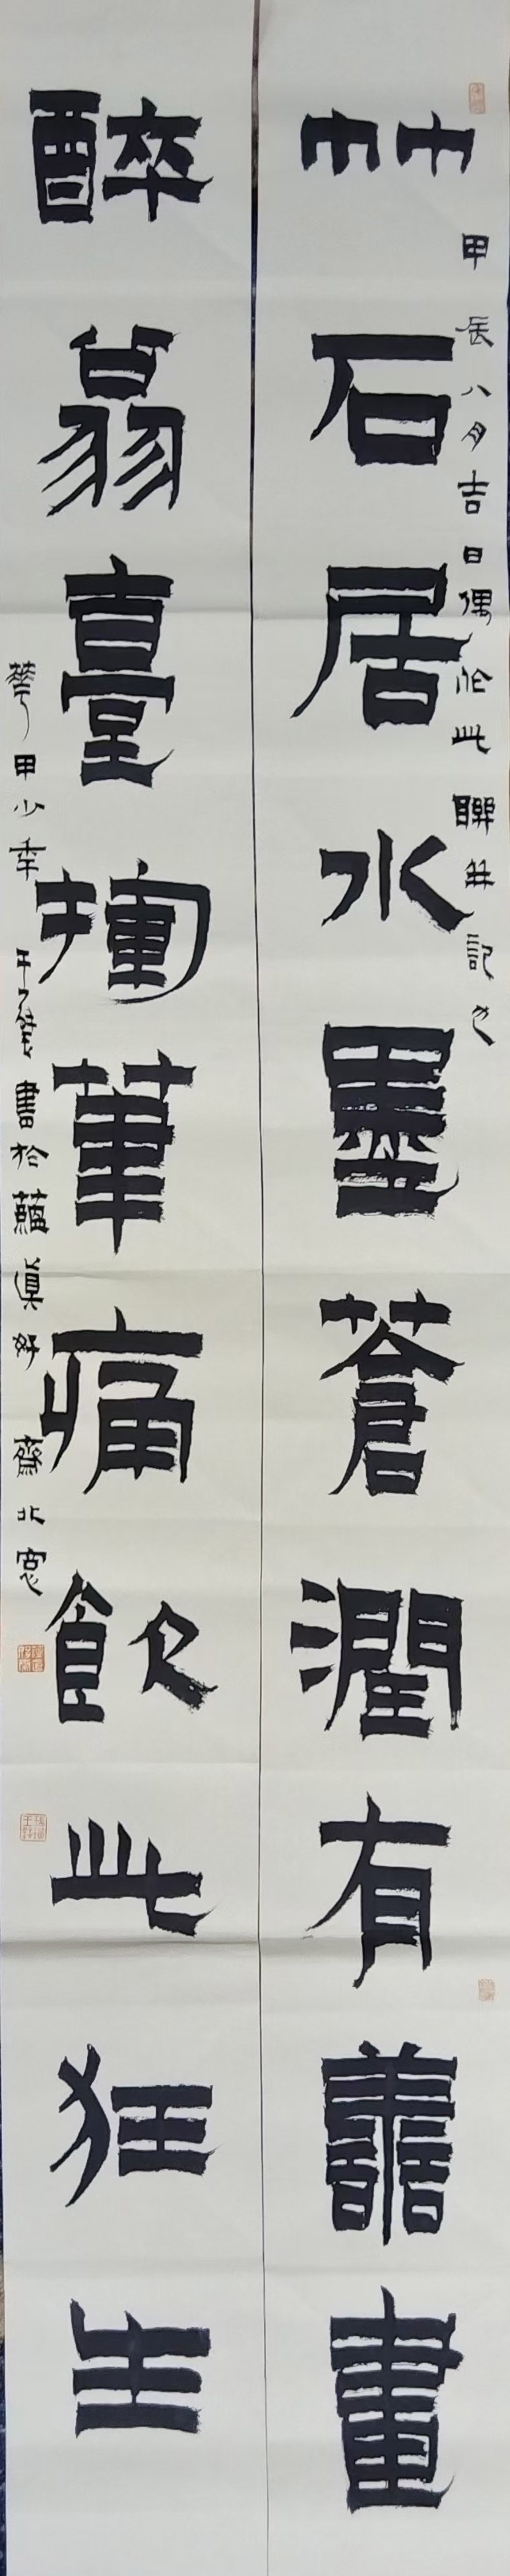 竹石居水墨蒼潤有譱畫
甲辰八月吉日偶作此聯并記
醉翁臺揮筆痛飲此狂生
華甲少年書於蘊真好齋北窗